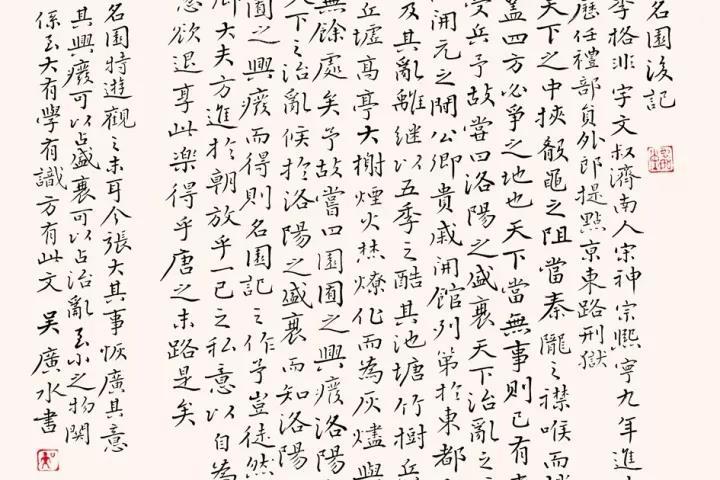 名園後記
李格非字文叔濟南人宋神宗熙寧九年進
歷任禮部員外郎提點京東路刑獄
天下之中挾殽黽之阻當秦隴之襟喉而
蓋四方必爭之地也天下當無事則已有事
受兵予故嘗曰洛陽之盛衰天下治亂之
開元之間公卿貴戚開館列第於東都
及其亂離繼以五季之酷其池塘竹樹兵
丘墟高亭大榭煙火焚燎化而為灰燼與
無餘處矣予故嘗曰園囿之興廢洛陽
天下之治亂候於洛陽之盛衰而知洛陽
園囿之興廢而得則名園記之作予豈徒然
卿大夫方進於朝放乎一己之私意以自為
忽欲退享此樂得乎唐之末路是矣
名園特遊觀之末耳今張大其事恢廣其意
其興廢可以占盛衰可以占治亂至小之物關
係至大有學有識方有此文 吳廣水書